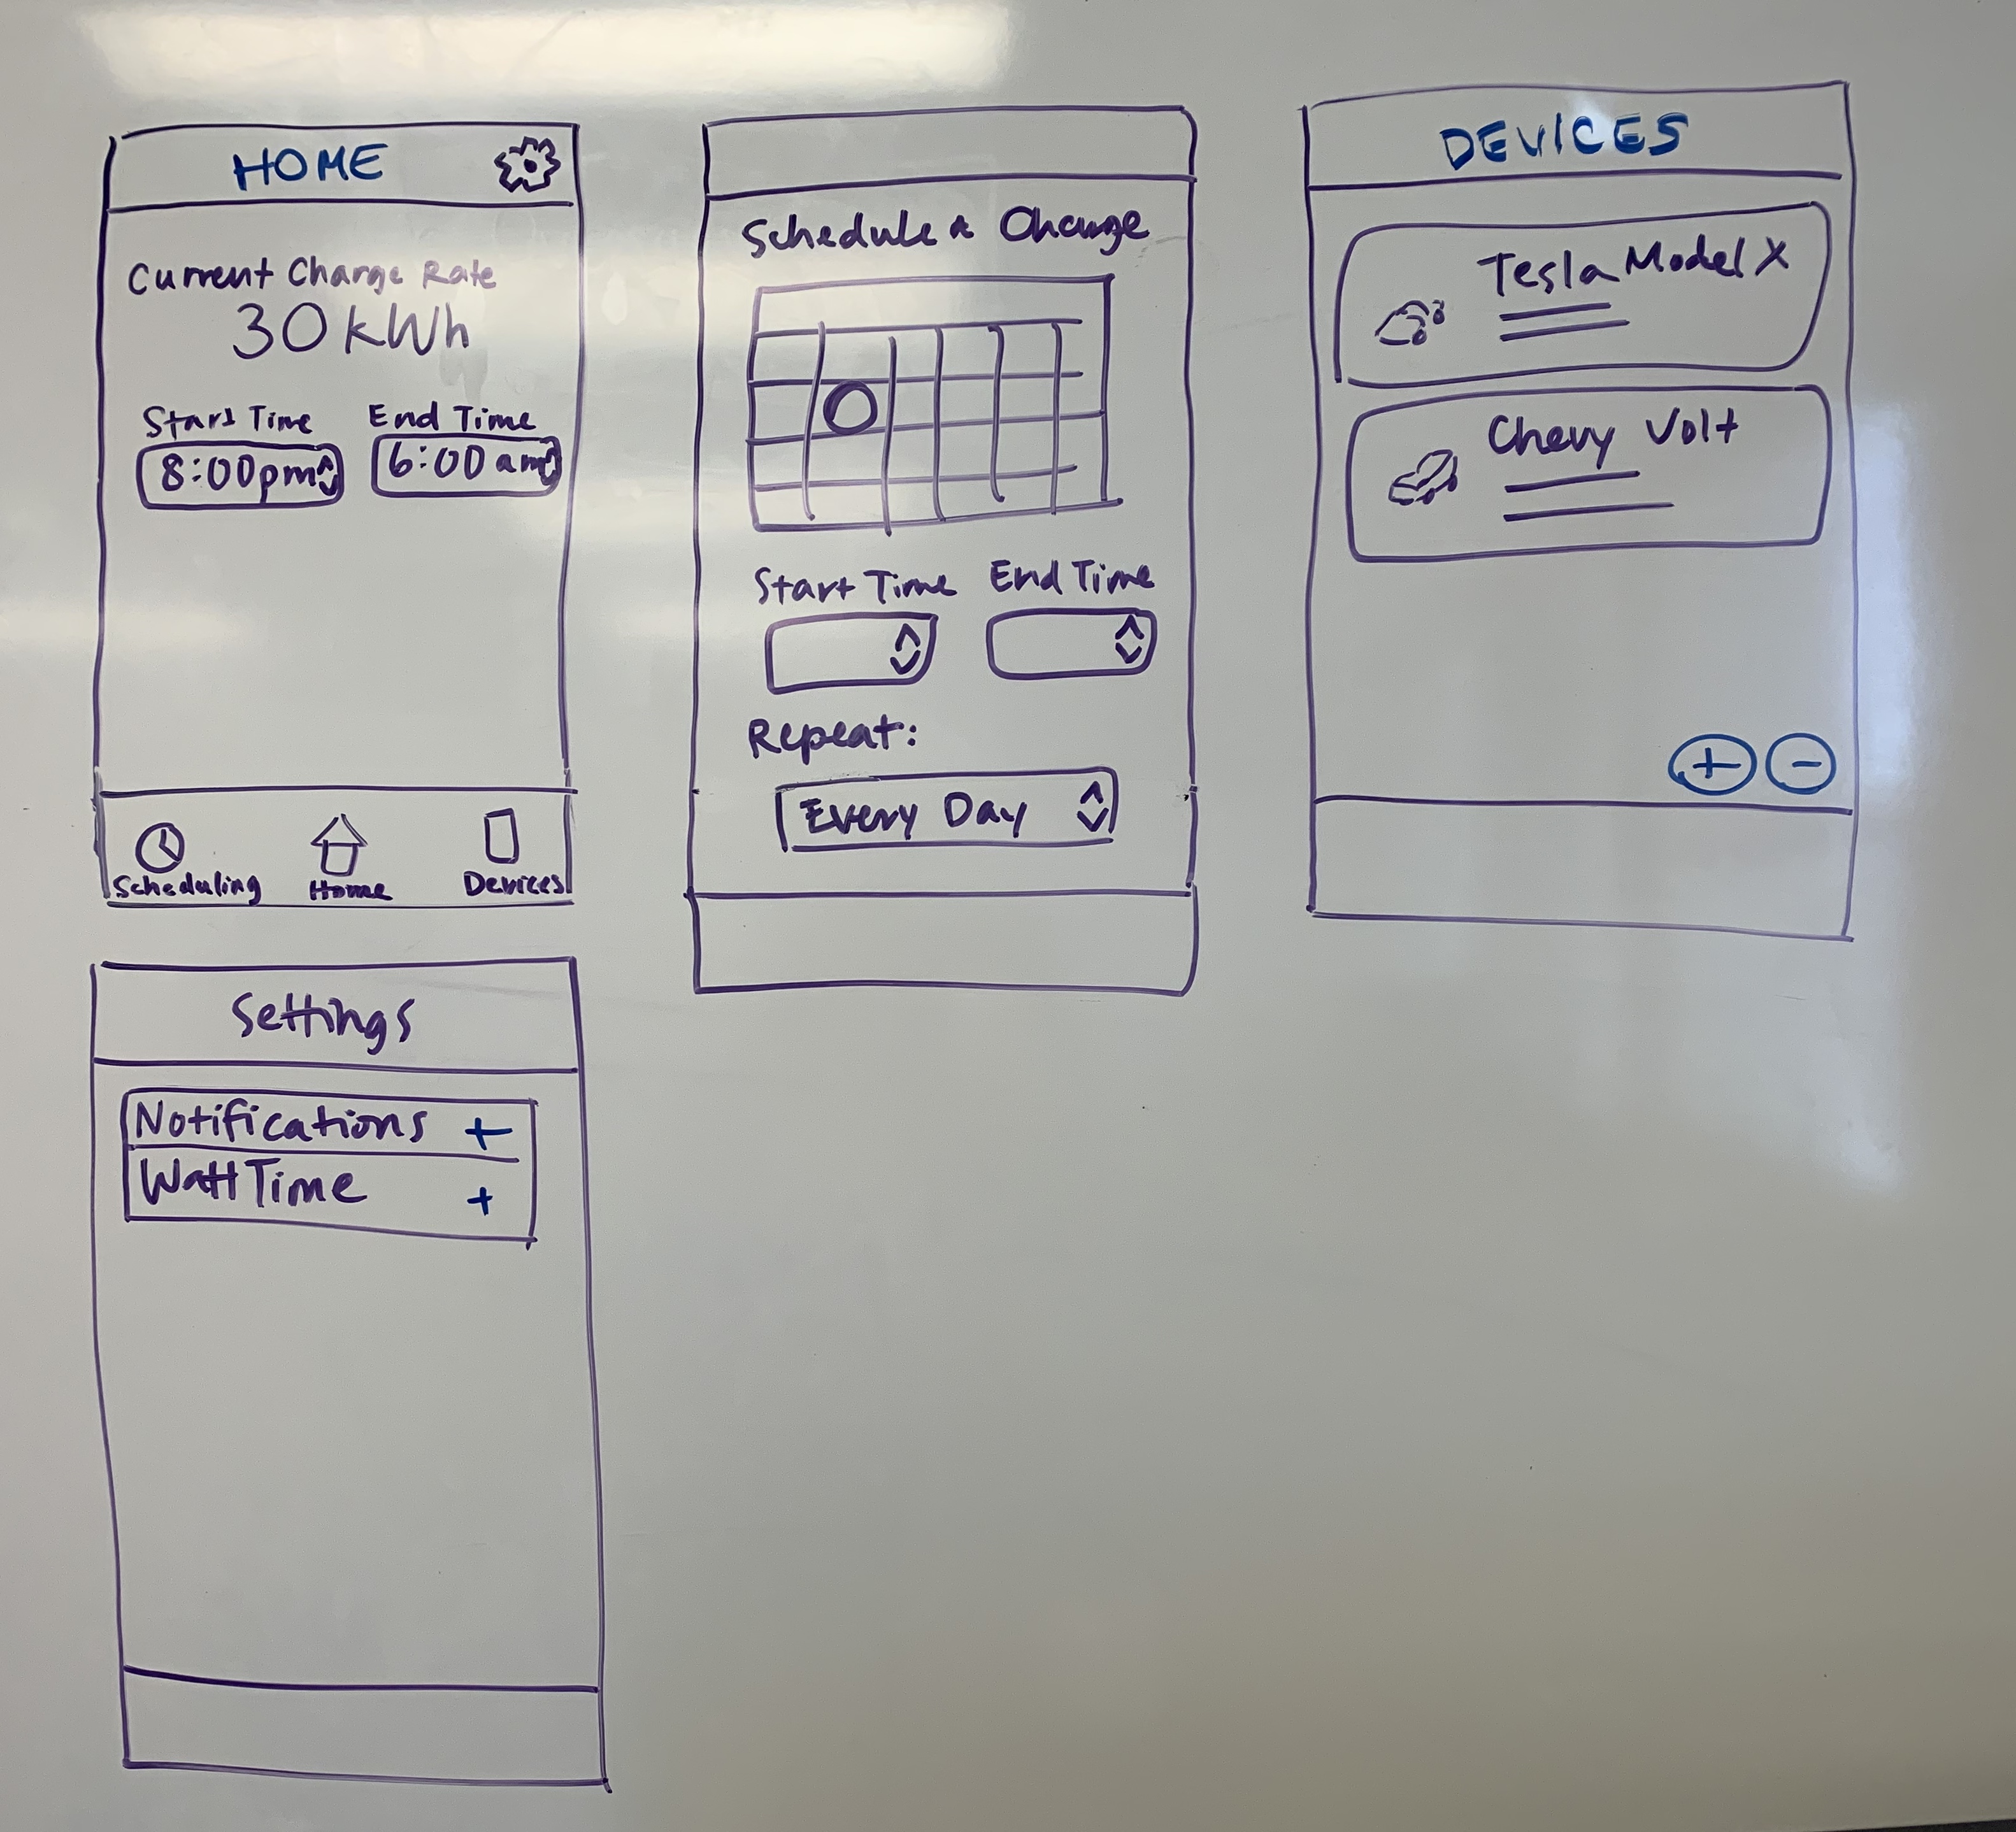 HOME
Current Charge Rate
30 kWh
Start Time End Time
8:00pm 6:00 am
Scheduling Home Devices
Schedule a Change
Start Time End Time
Repeat:
Every Day
DEVICES
Tesla Model X
Chevy Volt
+ -
Settings
Notifications +
WattTime +